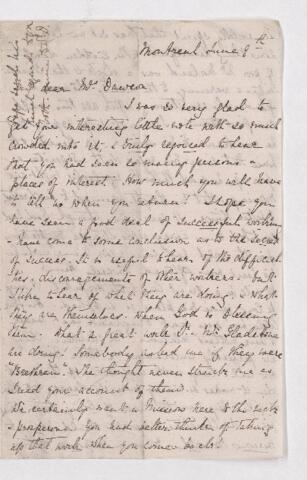 Montreal June 9th
My dear Mrs Dawson
I was so very glad to
get your interesting little note with so much
crowded into it, I truly rejoiced to hear
that you had seen so many persons &
places of interest. How much you will have
to tell us when you return! I hope you
have seen a good deal of successful workers
& have come to some conclusion as to the secret
of success. It is useful to hear of the difficul
ties, discouragements of other workers. but
to hear of what they are doing, & what
they are themselves. when God is blessing
them. What a great work Dr. Mrs Gladstone
are doing! Somebody asked me if they were
"Brethren". The thought never struck me as
I read your account of them.
We certainly want a Mission here to the
& prosperous. You had better think of taking
up that work when you come back!